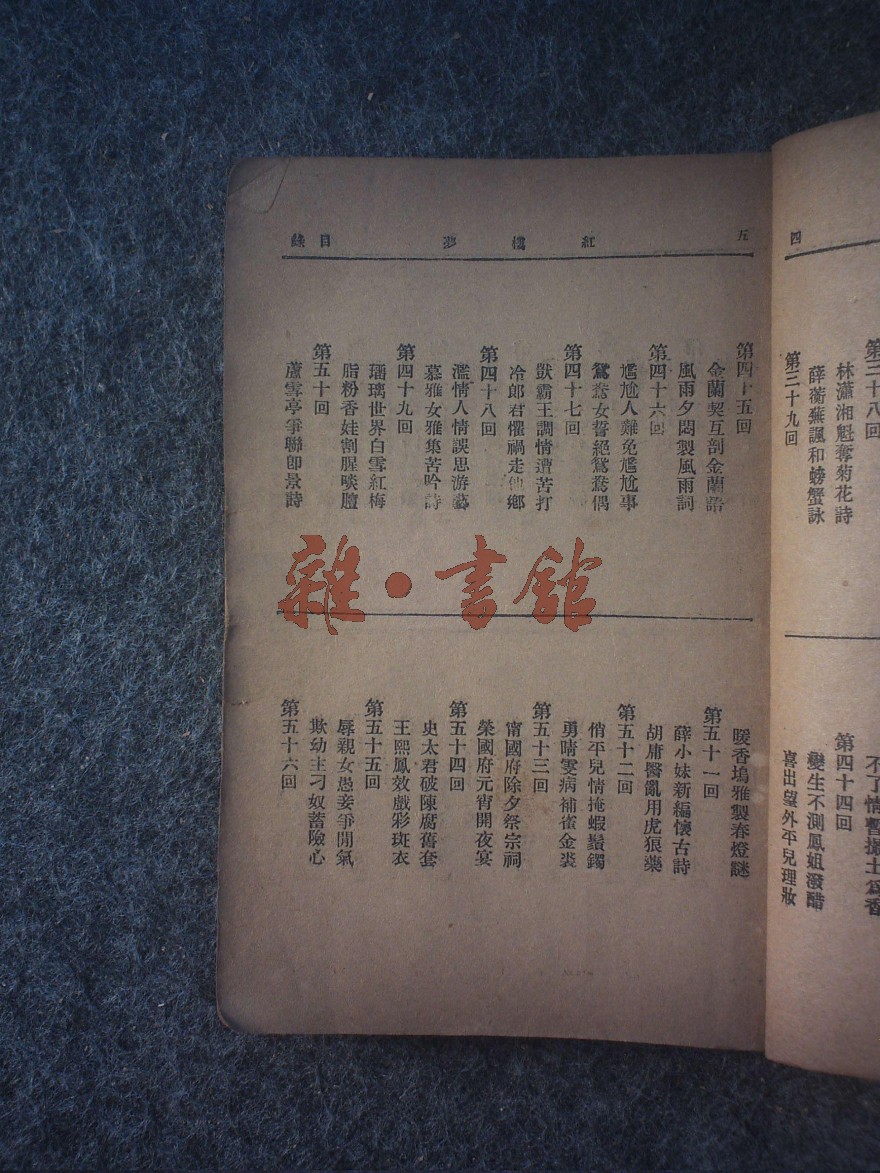 四
第三十八回
林瀟湘魁奪菊花詩
薛蘅蕪諷和螃蟹詠
第三十九回
不了情暫撮土爲香
第四十四回
變生不測鳳姐潑醋
喜出望外平兒理妝
五
紅樓夢
目錄
第四十五回
金蘭契互剖金蘭語
風雨夕悶製風雨詞
第四十六回
尷尬人難免尷尬事
鴛鴦女誓絕鴛鴦偶
第四十七回
獃霸王調情遭苦打
冷郎君懼禍走他鄉
第四十八回
濫情人情誤思游藝
慕雅女雅集苦吟詩
第四十九回
瑠璃世界白雪紅梅
脂粉香娃割腥啖膻
第五十回
蘆雪亭爭聯卽景詩
暖香塢雅製春燈謎
第五十一回
薛小妹新編懷古詩
胡庸醫亂用虎狼藥
第五十二回
俏平兒情掩蝦鬚鐲
勇晴雯病補雀金裘
第五十三回
甯國府除夕祭宗祠
榮國府元宵開夜宴
第五十四回
史太君破陳腐舊套
王熙鳳效戲彩斑衣
第五十五回
辱親女愚妾爭閒氣
欺幼主刁奴蓄險心
第五十六回
雜·書館